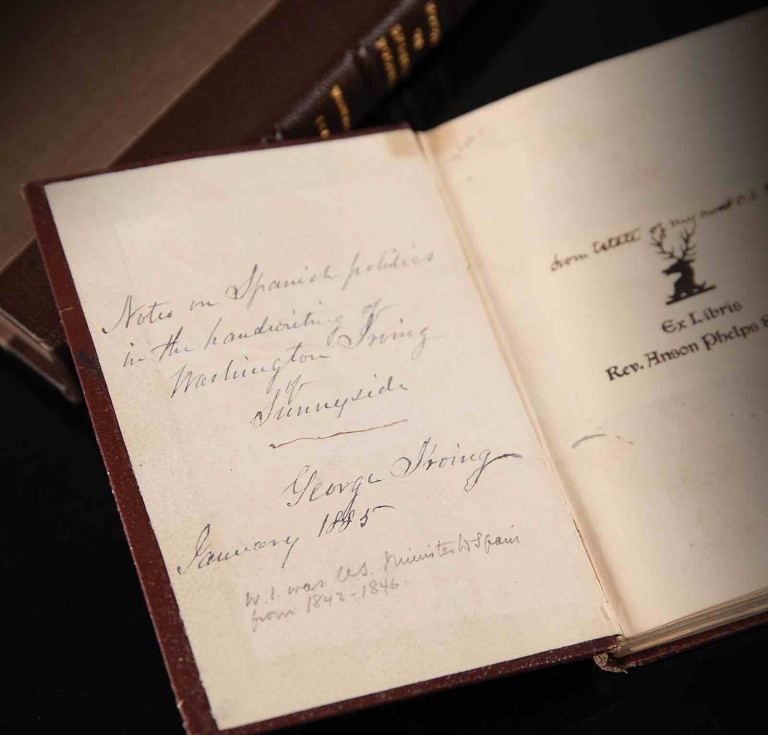 Notes on Spanish politics
in the handwriting of
Washington Irving
of
Sunnyside
George Irving
January 1885
W.I. was U.S. Minister to Spain
from 1842-1846.
from Estate of my aunt O.E.
Ex Libris
Rev. Anson Phelps S